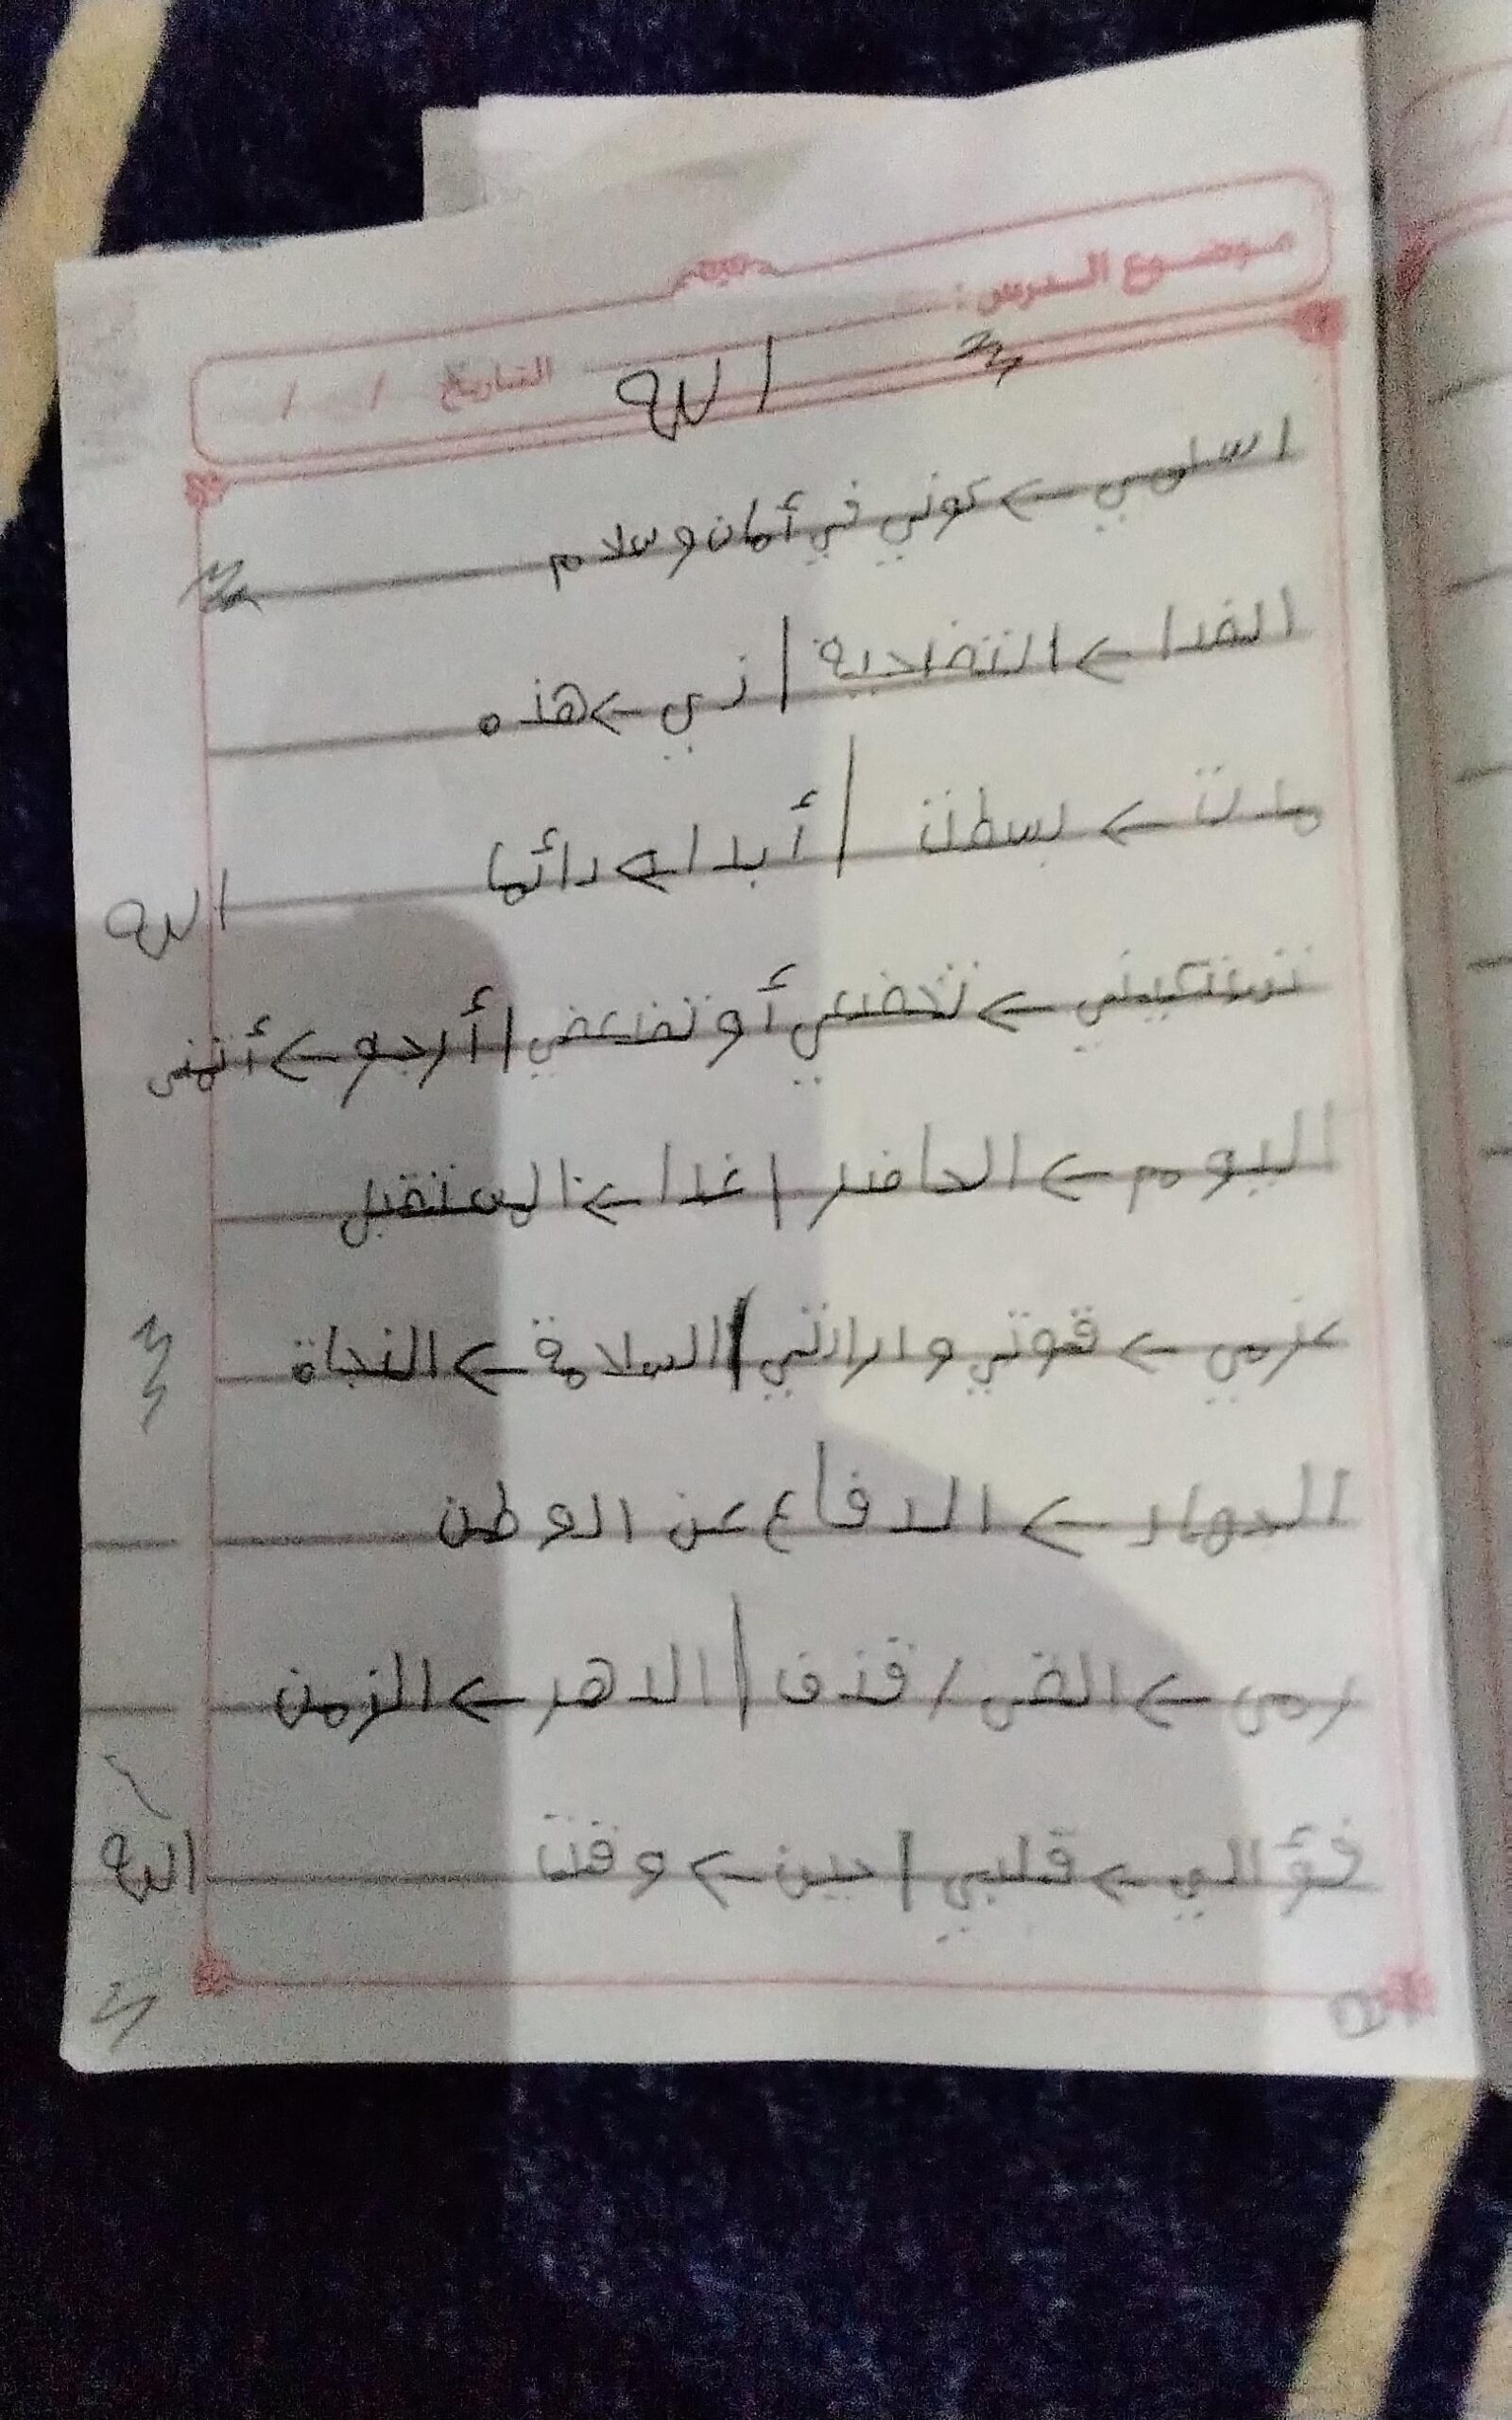 موضوع الدرس :
التاريخ / /
الله
اسلمي ← كوني في أمان وسلام
الفدا ← التضحية | ذي ← هذه
مدت ← بسطت | أبدا ← دائما
الله
تستكيني ← تخضعي أو تضعفي | أرجو ← أتمنى
اليوم ← الحاضر | غدا ← المستقبل
عزمي ← قوتي وارادتي | السلامة ← النجاة
الجهاد ← الدفاع عن الوطن
رمى ← القى / قذف | الدهر ← الزمن
فؤادي ← قلبي | حين ← وقت
الله